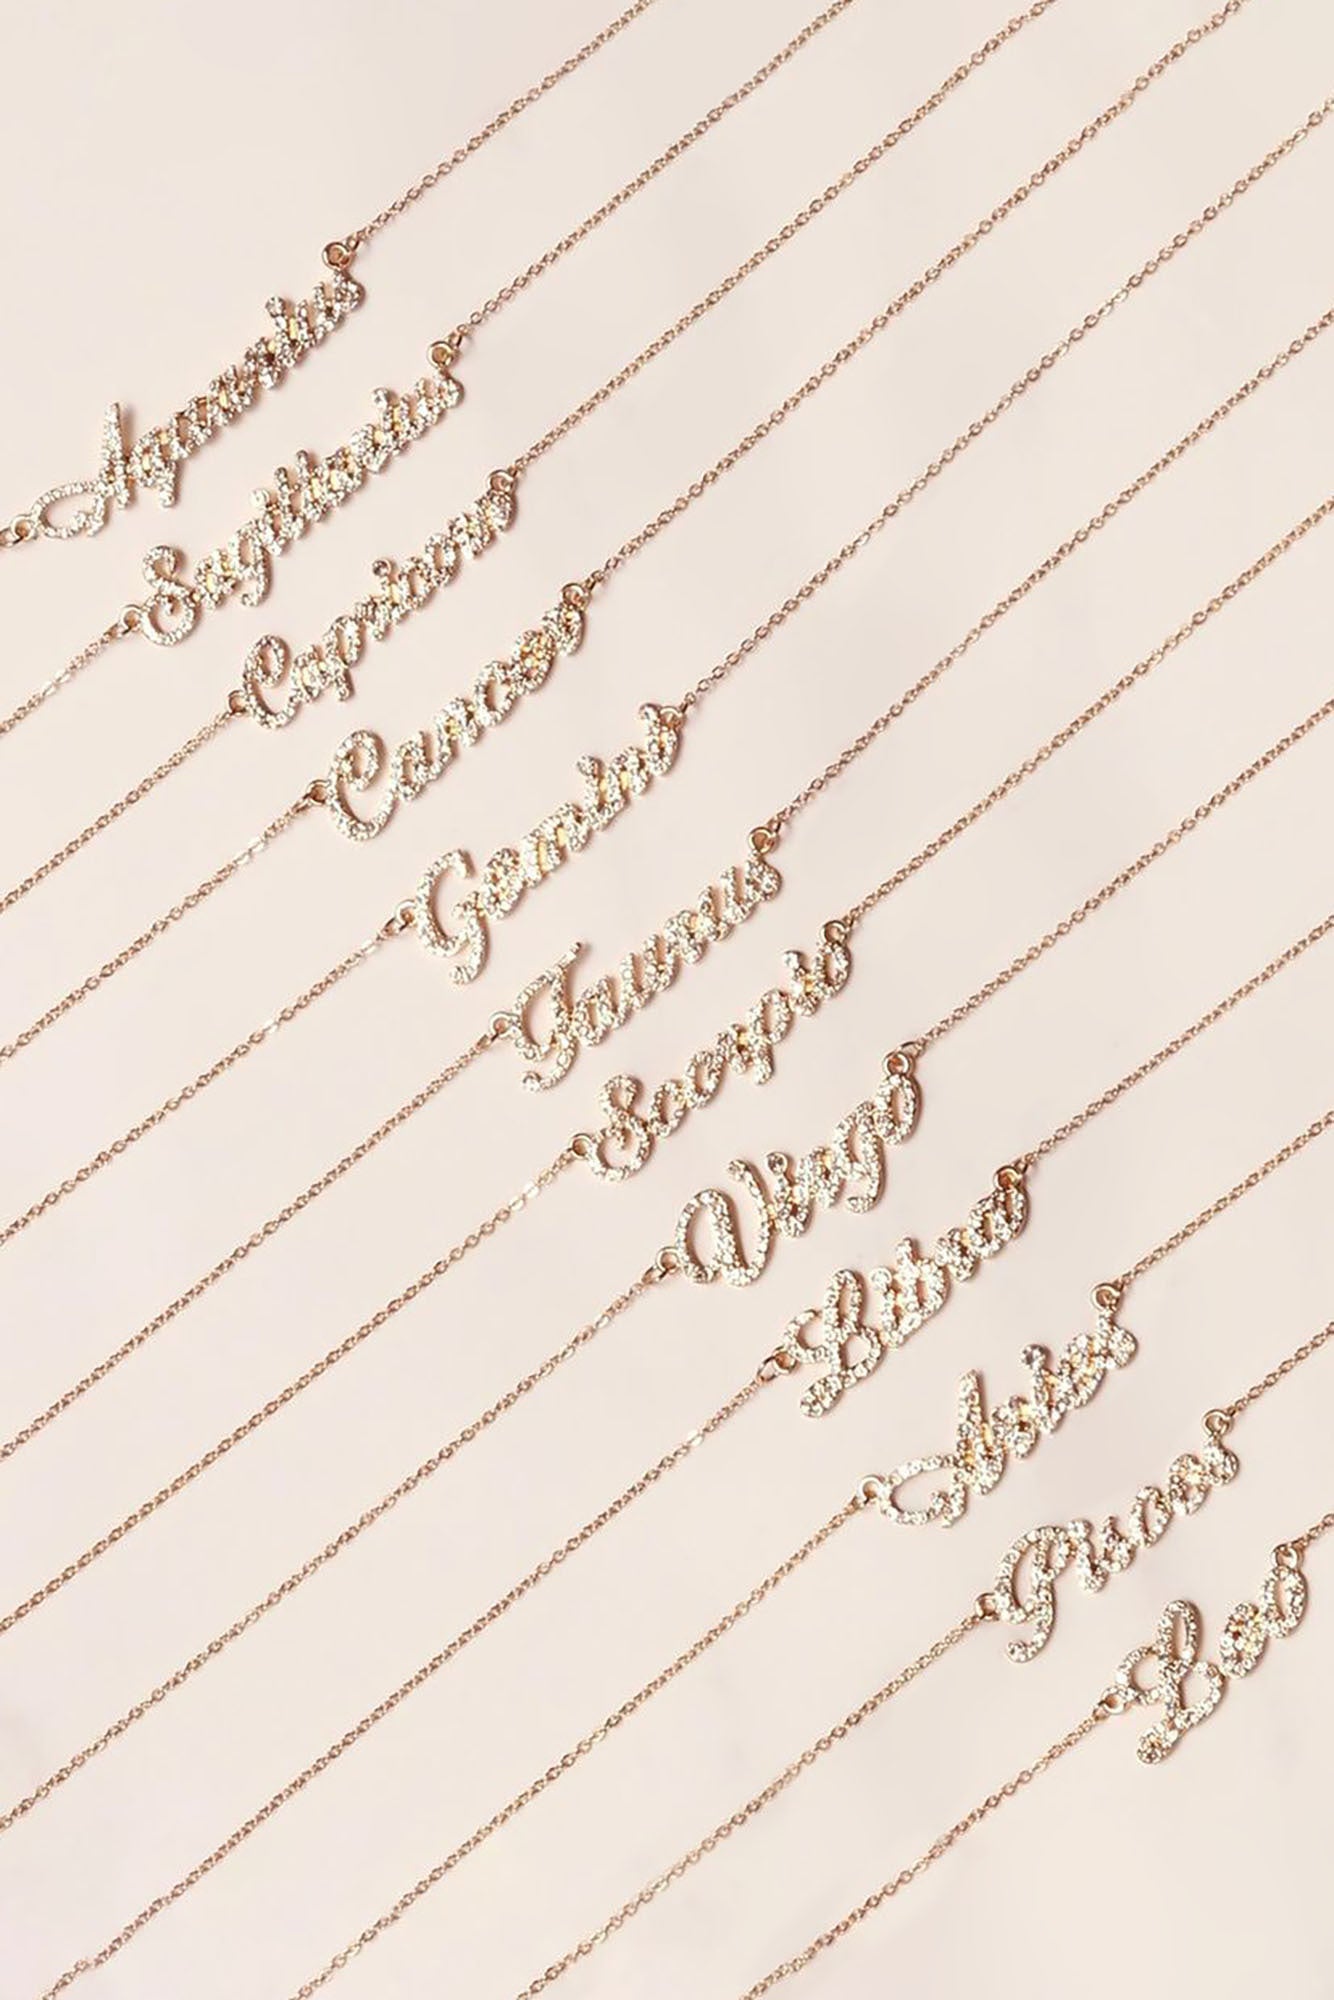 Aquarius
Sagittarius
Capricorn
Cancer
Gemini
Taurus
Scorpio
Virgo
Libra
Aries
Pisces
Leo